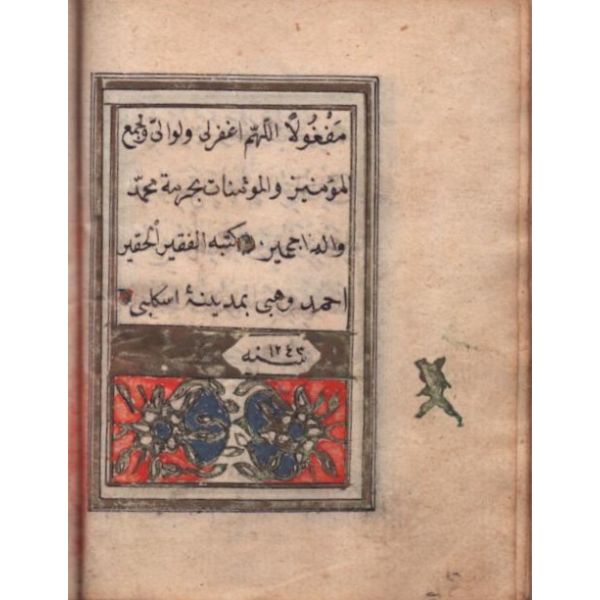 مَفْعُولًا اللهمّ اغفرلى ولوالدىّ ولجميع
المؤمنين والمؤمنات بحرمة محمّد
واله اجمعين كتبه الفقير الحقير
احمد وهبى بمدينۀ اسكليبى
سنه ١٢٤٣